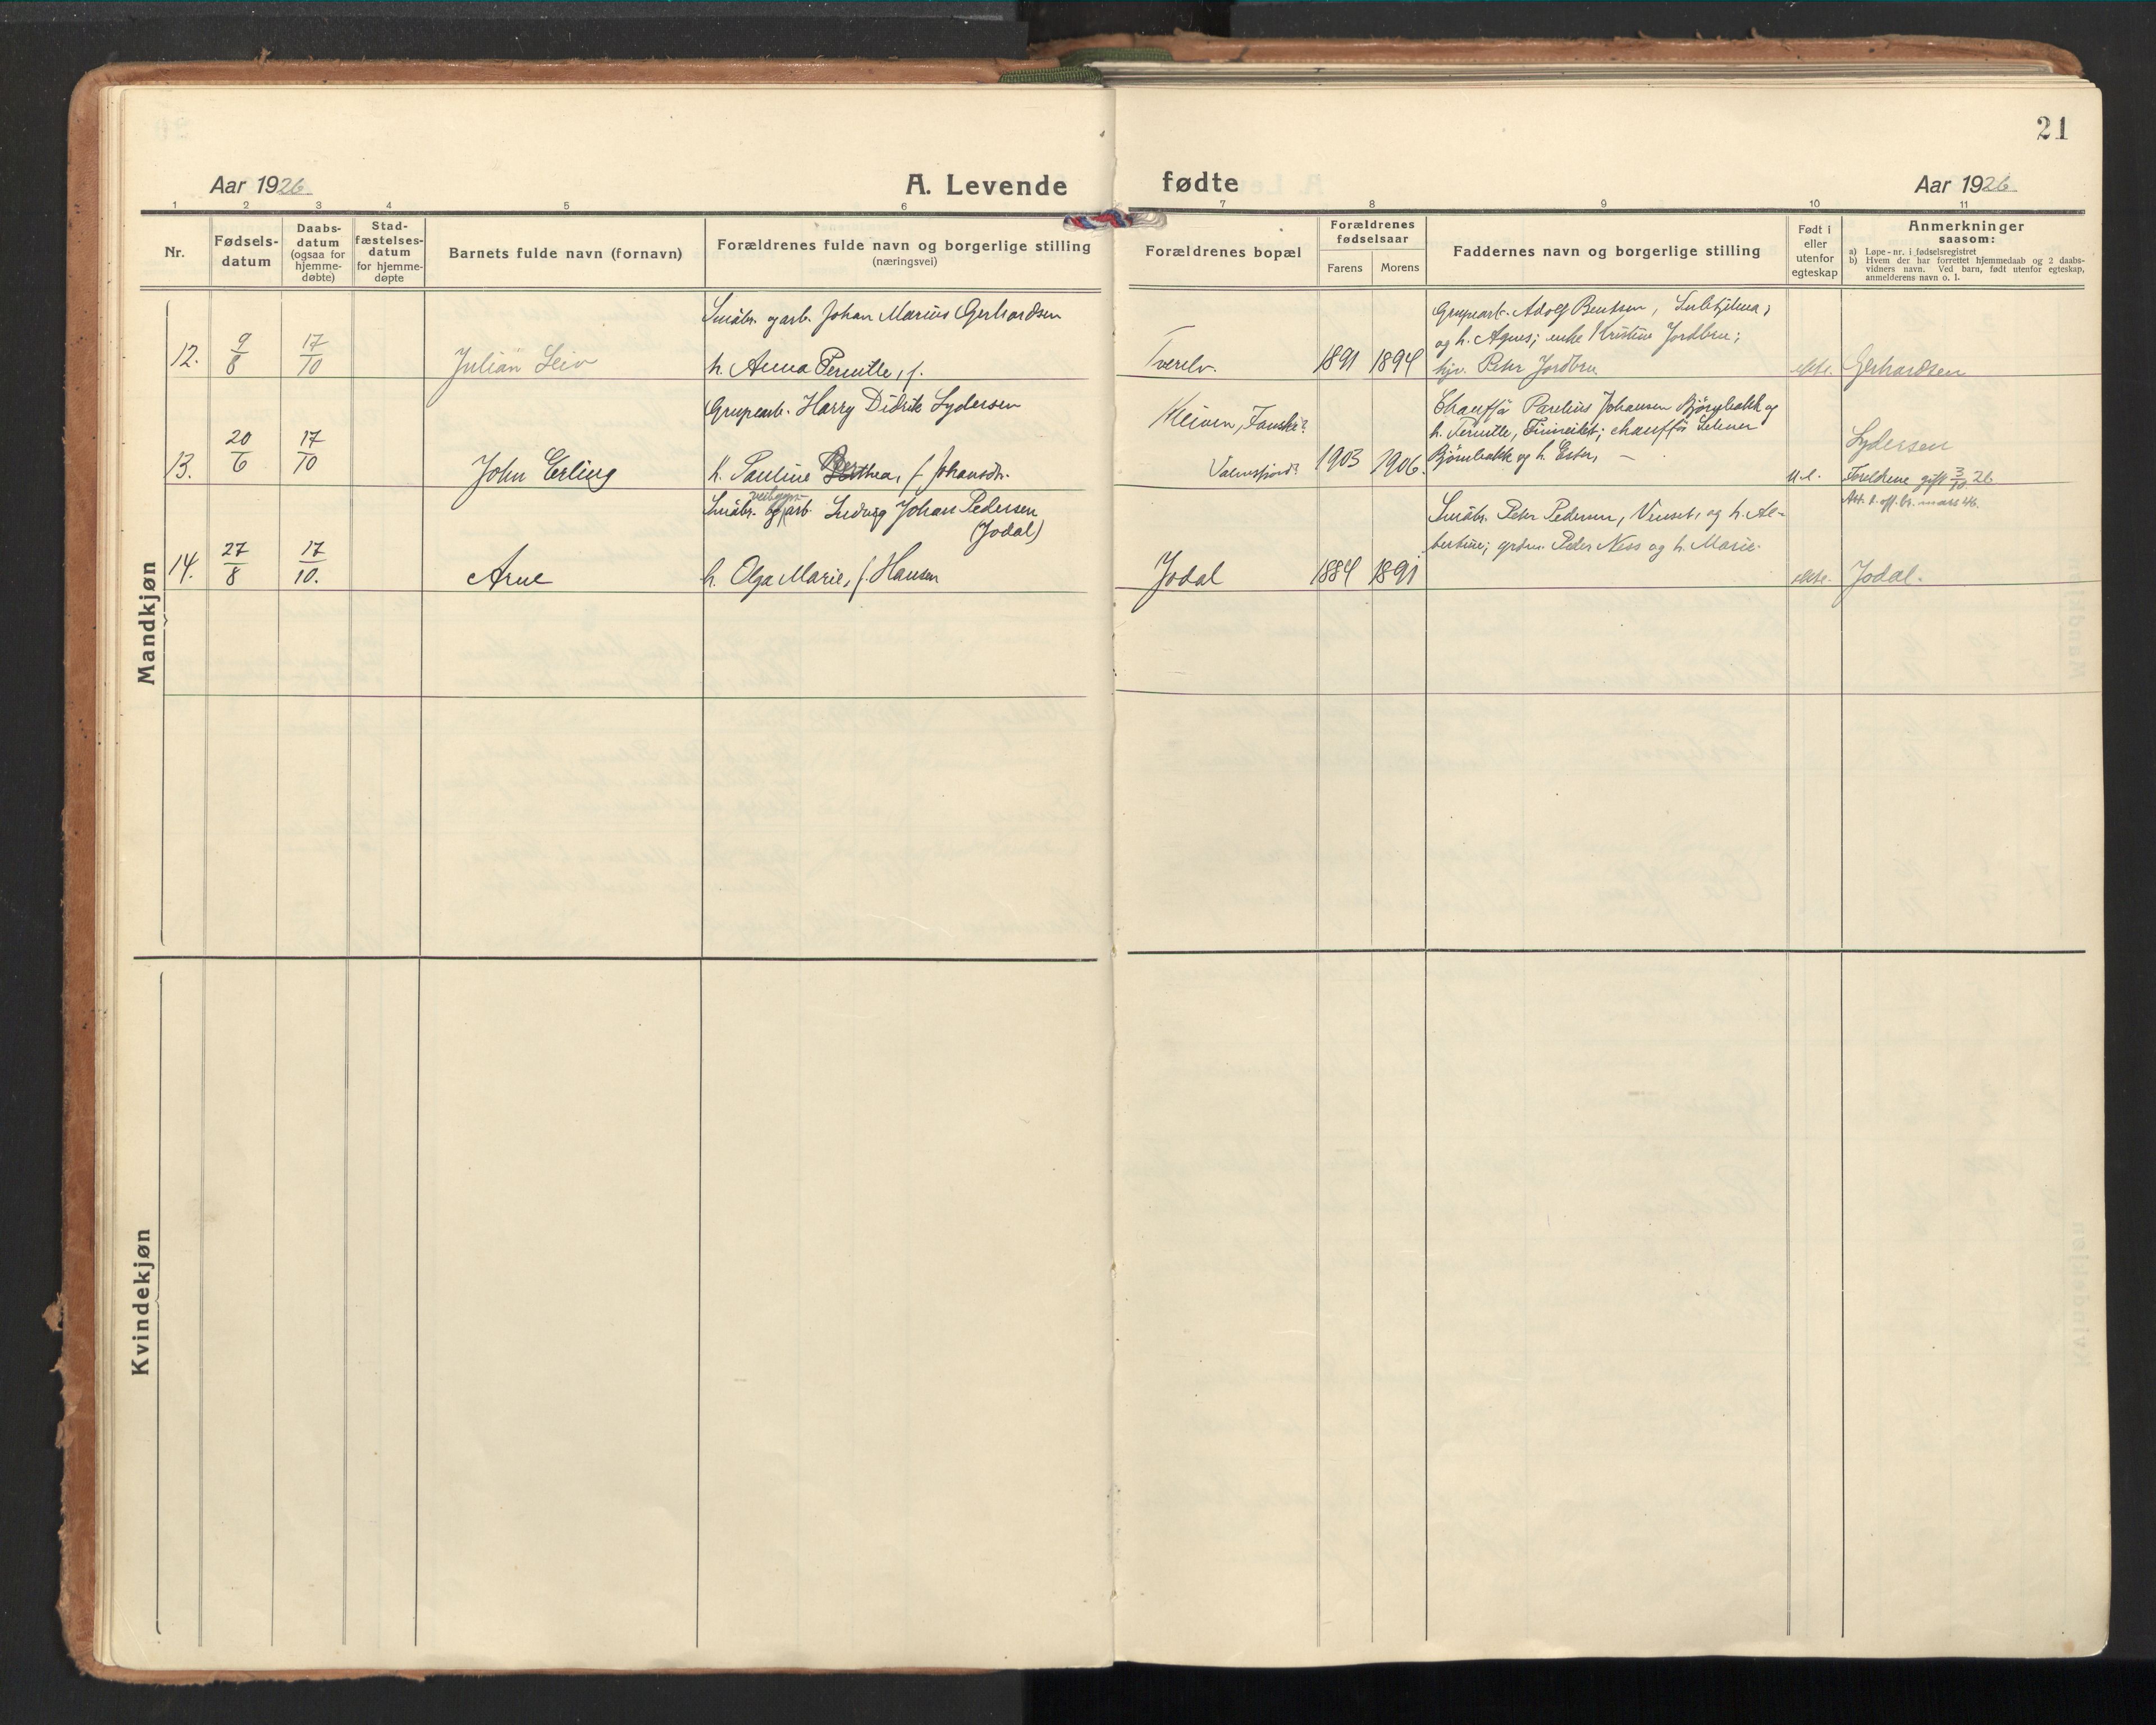 21
Aar 1926. A. Levende fødte Aar 1926.
1 2 3 4 5 6 7 8 9 10 11
Nr.
Fødsels-
datum
Daabs-
datum
(ogsaa for
hjemme-
døbte)
Stad-
fæstelses-
datum
for hjemme-
døpte
Barnets fulde navn (fornavn)
Forældrenes fulde navn og borgerlige stilling
(næringsvei)
Forældrenes bopæl
Forældrenes
fødselsaar
Farens Morens
Faddernes navn og borgerlige stilling
Født i
eller
utenfor
egteskap
Anmerkninger
saasom:
a) Løpe-nr. i fødselsregistret
b) Hvem der har forrettet hjemmedaab og 2 daabs-
vidners navn. Ved barn, født utenfor egteskap,
anmelderens navn o. l.
Mandkjøn
12. 9/8 17/10 Julian Leiv
Småbr. og arb. Johan Marius Gerhardsen
h. Anna Pernille, f.
Tverelv. 1891 1894
Grupearb. Adolf Bentsen, Sulitjelma;
og h. Agnes; enke Kristine Jordbru;
hjv. Peter Jordbru
ekte. Gerhardsen
13. 20/6 17/10 John Erling
Grupearb. Harry Didrik Lydersen
h. Pauline Berthea, f. Johansdtr.
Kleiven, Fauske?
Valnesfjord? 1903 1906.
Chauffør Parelius Johansen Bjørnbakk og
h. Pernille, Finneidet; chauffør
Bjørnbakk og h. Ester, —
u.e.
Lydersen
Foreldrene gift 3/10 26
Att. t. off. br. mars 46.
14. 27/8 17/10. Arne
Småbr. og arb. Ludvig Johan Pedersen
(Jodal)
h. Olga Marie, f. Hansen
Jodal 1884 1891
Småbr. Peter Pedersen, Venset, og h. Al-
bertine; grdm. Peder Ness og h. Marie.
ekte. Jodal.
Kvindekjøn